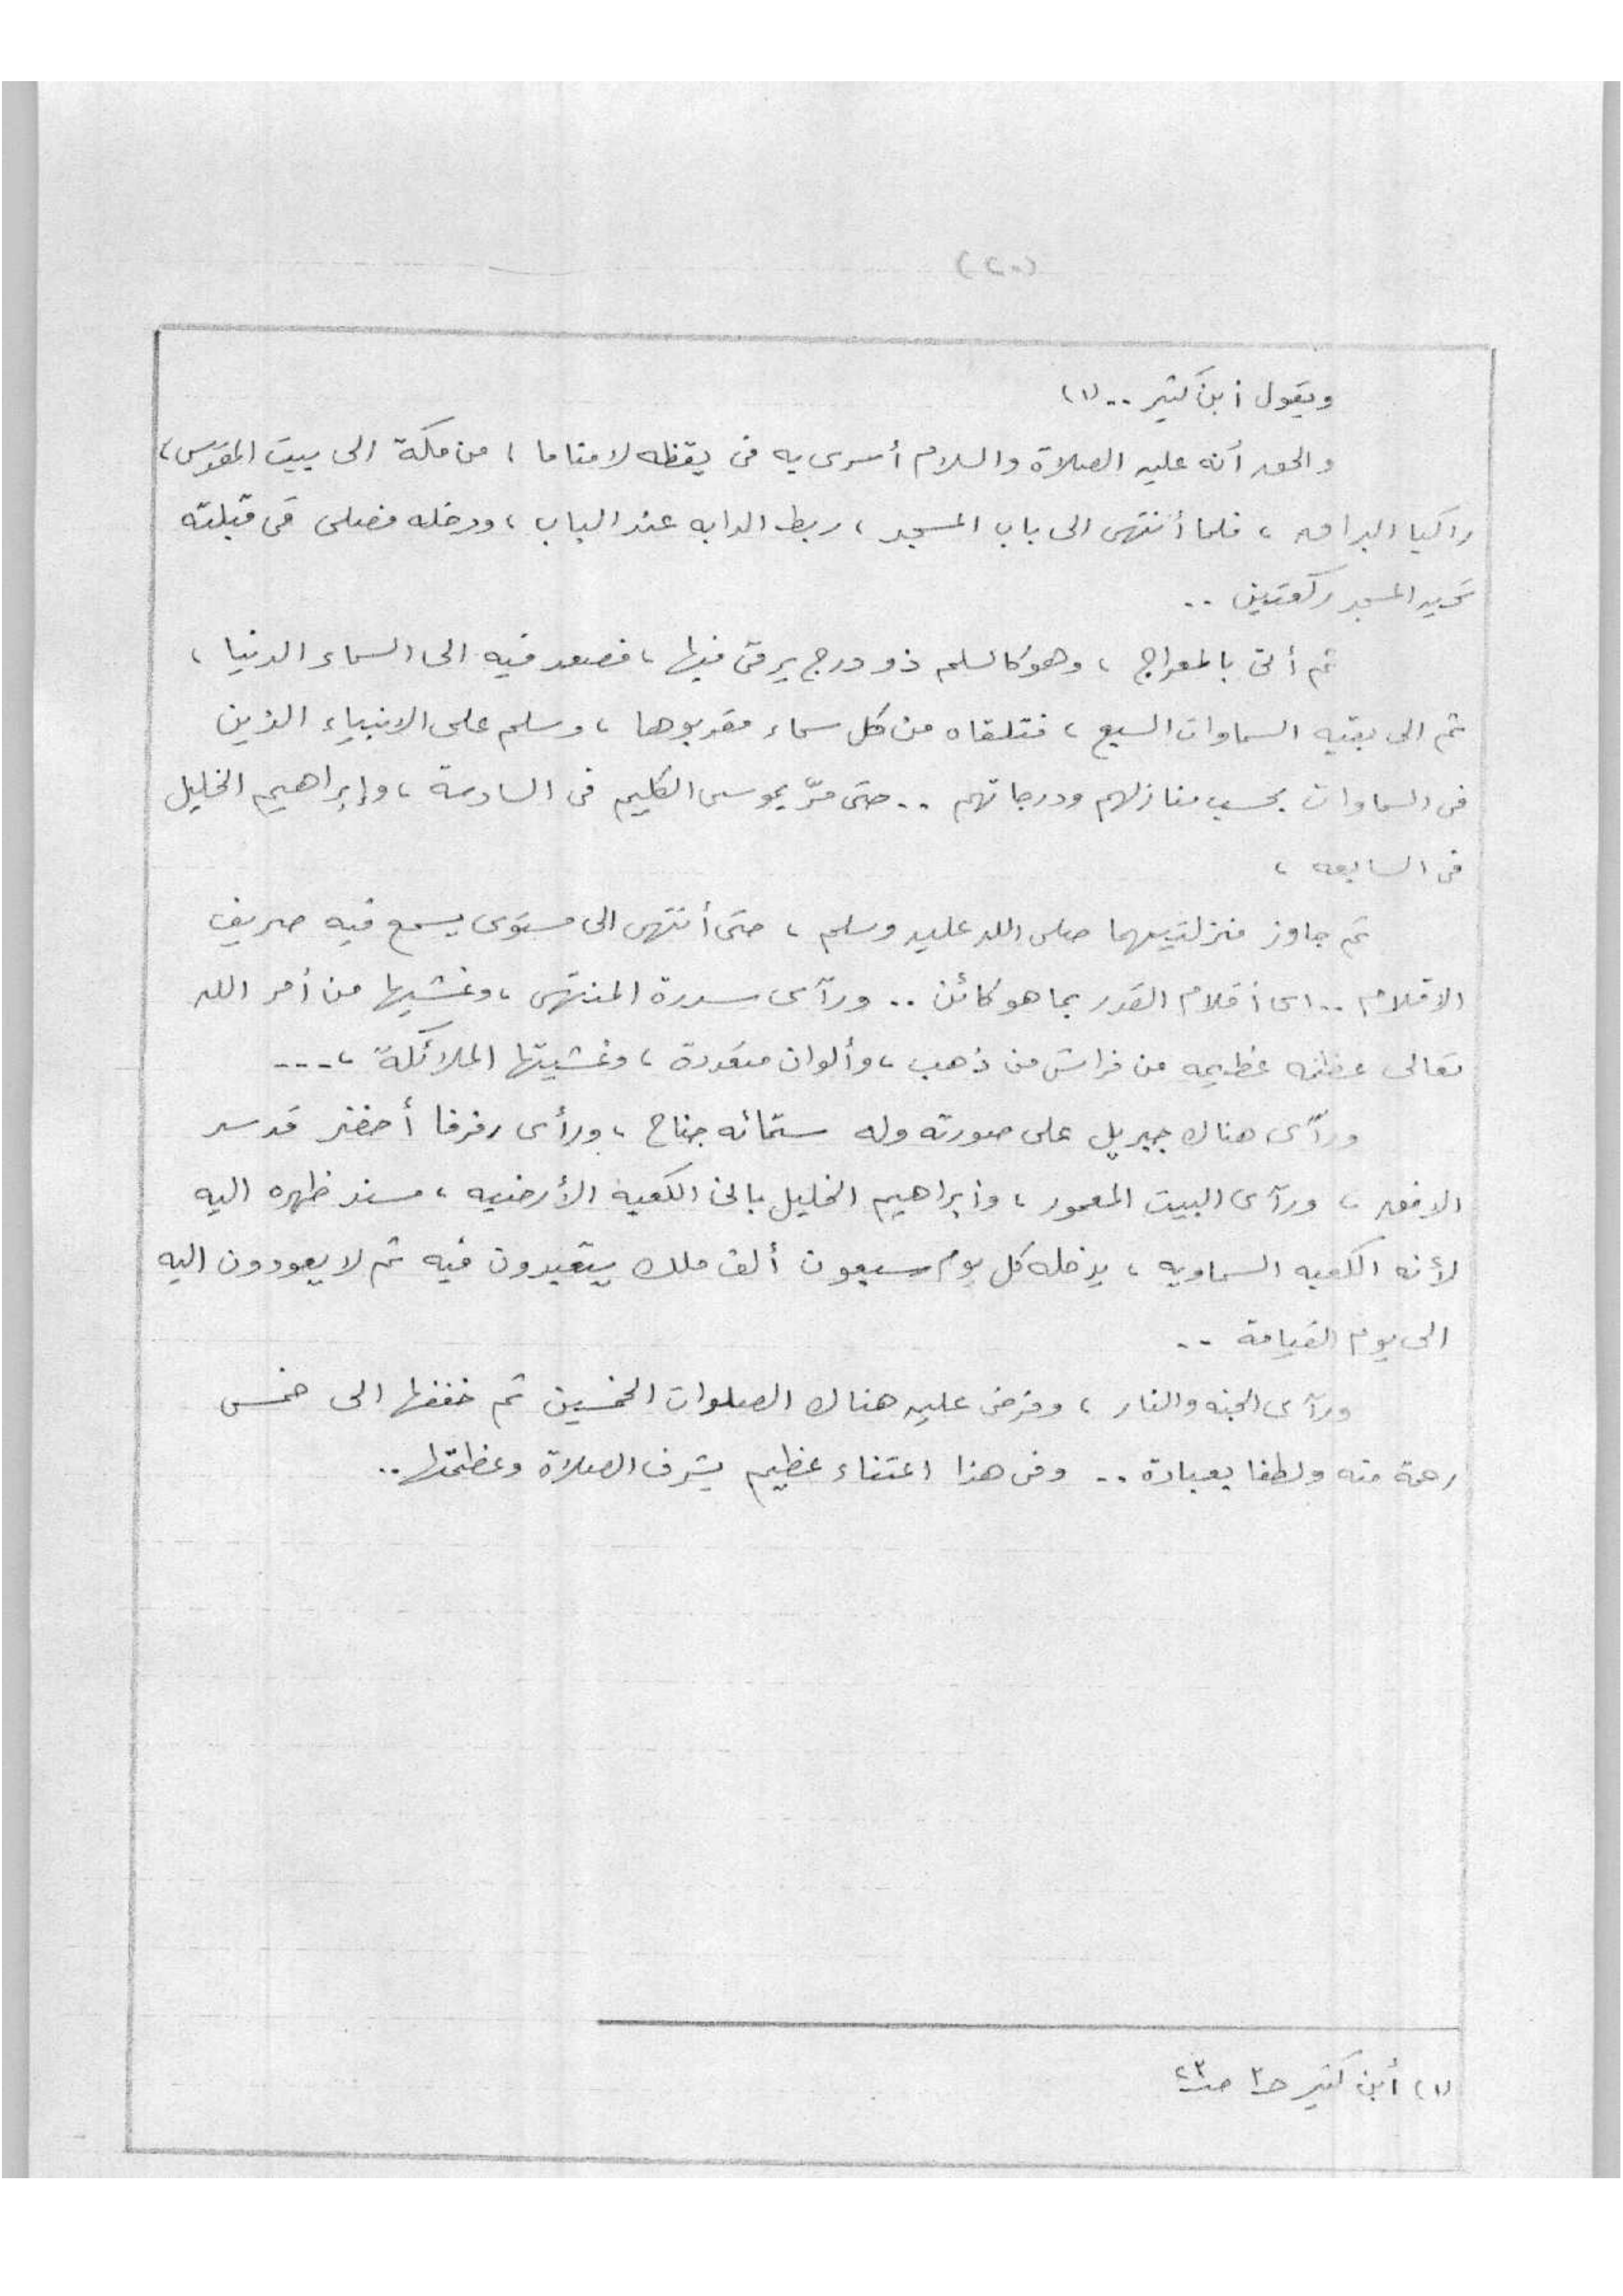 (٢٠)
ويقول أبن كثير .. (١)
والحق أنه عليه الصلاة والسلام أسرى به فى يقظه لا مناما ، من مكة الى بيت المقدس ،
راكبا البراق ، فلما أنتهى الى باب المسجد ، ربط الدابه عند الباب ، ودخله فصلى فى قبلته
تحيه المسجد ركعتين ..
ثم أتى بالمعراج ، وهو كالسلم ذو درج يرقى فيها ، فصعد فيه الى السماء الدنيا ،
ثم الى بقيه السماوات السبع ، فتلقاه من كل سماء مقربوها ، وسلم على الانبياء الذين
فى السماوات بحسب منازلهم ودرجاتهم .. حتى مرّ بموسى الكليم فى السادسة ، وإبراهيم الخليل
فى السابعه ،
ثم جاوز منزلتيهما صلى الله عليه وسلم ، حتى أنتهى الى مستوى يسمع فيه صريف
الاقلام .. اى أقلام القدر بما هو كائن .. ورآى سدرة المنتهى ، وغشيها من أمر الله
تعالى عظمه عظيمه من فراش من ذهب ، وألوان متعددة ، وغشيتها الملائكة ، ....
ورآى هناك جبريل على صورته وله ستمائه جناح ، ورأى رفرفا أخضر قد سد
الافق ، ورآى البيت المعمور ، وأبراهيم الخليل بانى الكعبه الأرضيه ، مسند ظهره اليه
لأنه الكعبه السماويه ، يدخله كل يوم سبعون ألف ملك يتعبدون فيه ثم لا يعودون اليه
الى يوم القيامة ..
ورآى الجنه والنار ، وفرض عليه هناك الصلوات الخمسين ثم خففها الى خمس
رحمة منه ولطفا بعبادة .. وفى هذا اعتناء عظيم بشرف الصلاة وعظمتها ..
(١) أبن كثير حـ٣ صـ٢٣